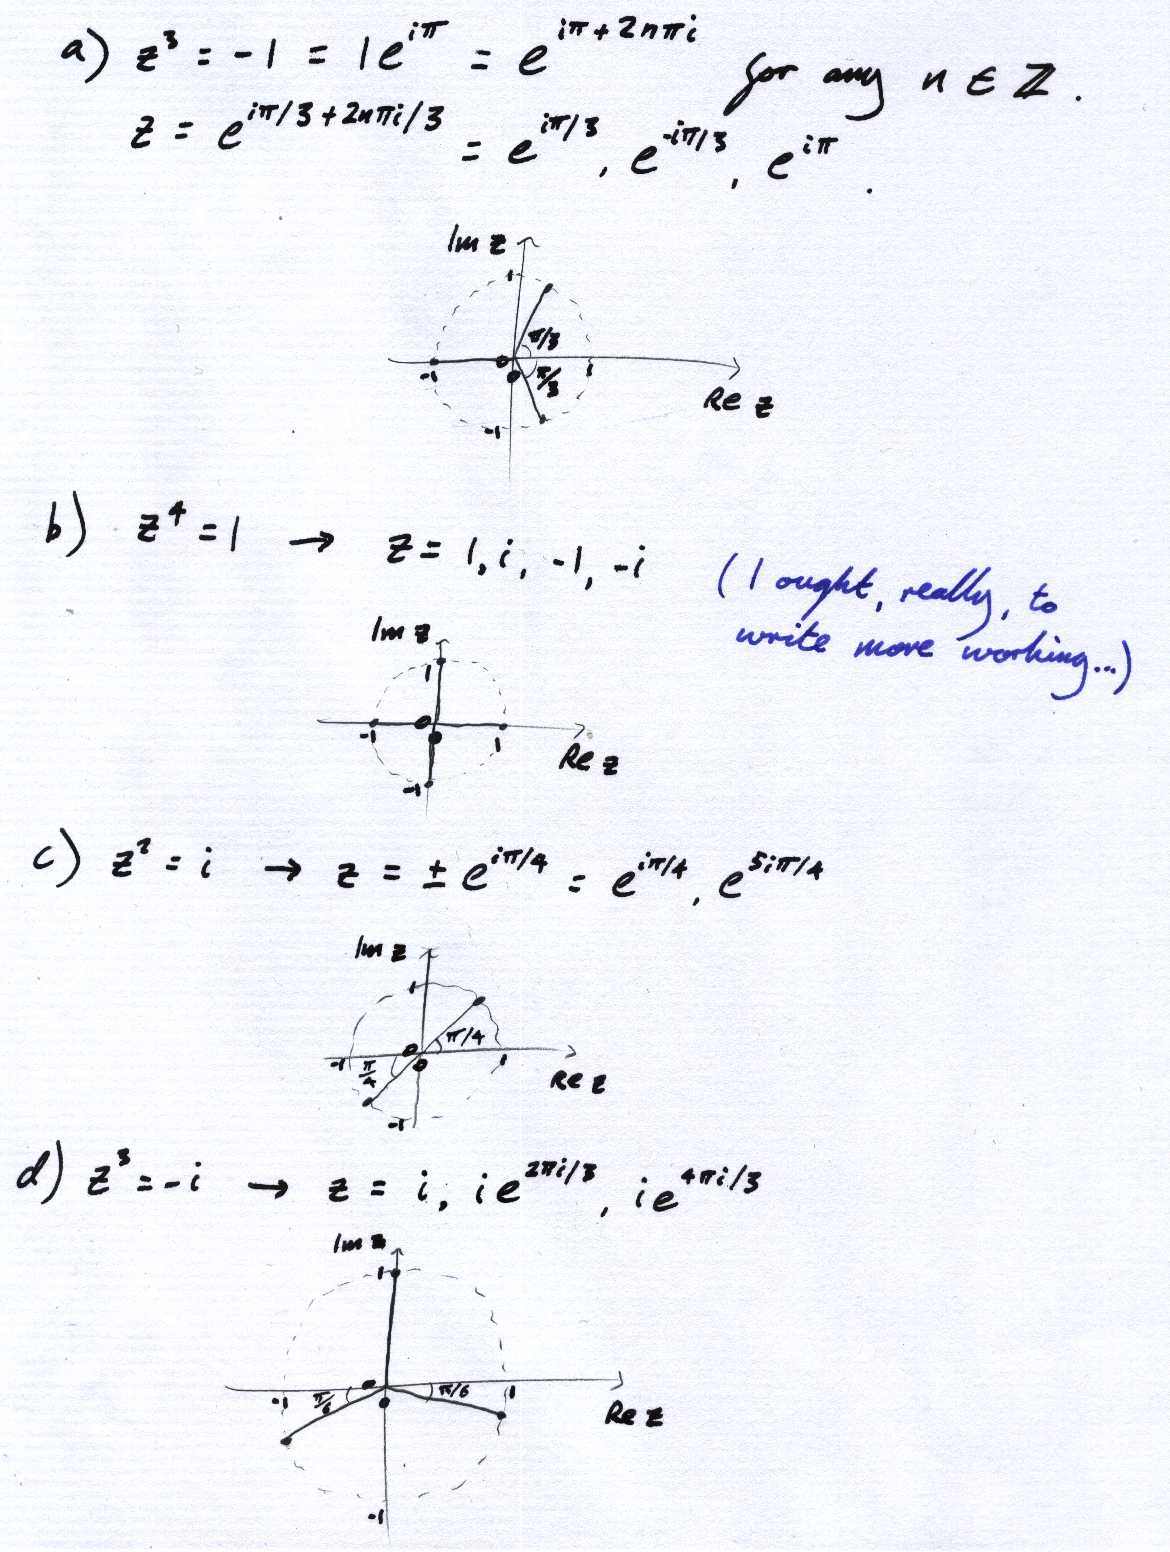 a) z³ = -1 = 1e^{iπ} = e^{iπ+2nπi} for any n ∈ ℤ.
z = e^{iπ/3+2nπi/3} = e^{iπ/3}, e^{-iπ/3}, e^{iπ}.
Im z
1
π/3
-1 0 1
0 π/3
Re z
-1
b) z⁴ = 1 → z = 1, i, -1, -i
(I ought, really, to
write more working...)
Im z
1
0
-1 0 1
Re z
-1
c) z² = i → z = ± e^{iπ/4} = e^{iπ/4}, e^{5iπ/4}
Im z
1
π/4
0
-1 π/4 0 1
Re z
-1
d) z³ = -i → z = i, ie^{2πi/3}, ie^{4πi/3}
Im z
1
0
-1 π/6 0 π/6 1
Re z
-1